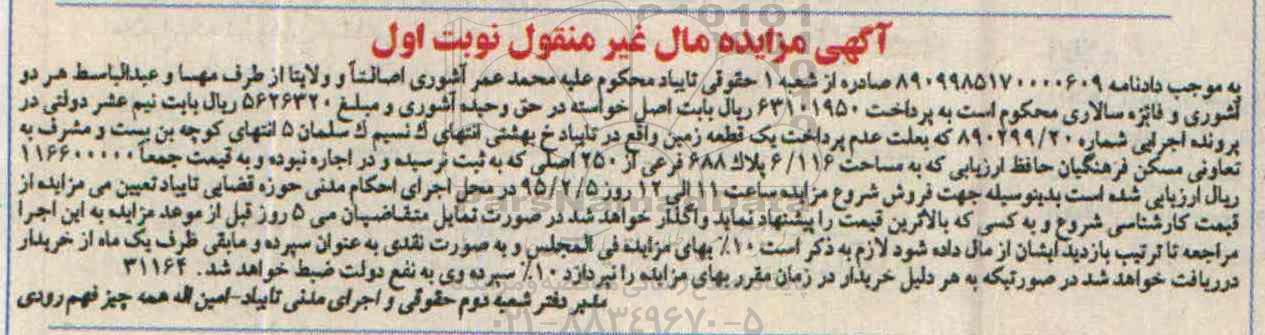 آگهی مزایده مال غیر منقول نوبت اول
به موجب دادنامه ۸۹۰۹۹۸۵۱۷۰۰۰۰۶۰۹ صادره از شعبه ۱ حقوقی تایباد محکوم علیه محمد عمر آشوری اصالتاً و ولایتا از طرف مهسا و عبدالباسط هر دو
آشوری و فائزه سالاری محکوم است به پرداخت ۶۳۱۰۱۹۵۰ ریال بابت اصل خواسته در حق وحیده آشوری و مبلغ ۵۶۲۶۳۲۰ ریال بابت نیم عشر دولتی در
پرونده اجرایی شماره ۸۹۰۲۹۹/۲۰ که بعلت عدم پرداخت یک قطعه زمین واقع در تایباد خ بهشتی انتهای ک نسیم ک سلمان ۵ انتهای کوچه بن بست و مشرف به
تعاونی مسکن فرهنگیان حافظ ارزیابی که به مساحت ۶/۱۱۶ پلاک ۶۸۸ فرعی از ۲۵۰ اصلی که به ثبت نرسیده و در اجاره نبوده و به قیمت جمعاً ۱۱۶۶۰۰۰۰۰
ریال ارزیابی شده است بدینوسیله جهت فروش شروع مزایده ساعت ۱۱ الی ۱۲ روز ۹۵/۲/۵ در محل اجرای احکام مدنی حوزه قضایی تایباد تعیین می مزایده از
قیمت کارشناسی شروع و به کسی که بالاترین قیمت را پیشنهاد نماید واگذار خواهد شد در صورت تمایل متقاضیان می ۵ روز قبل از موعد مزایده به این اجرا
مراجعه تا ترتیب بازدید ایشان از مال داده شود لازم به ذکر است ۱۰٪ بهای مزایده فی المجلس و به صورت نقدی به عنوان سپرده و مابقی ظرف یک ماه از خریدار
دریافت خواهد شد در صورتیکه به هر دلیل خریدار در زمان مقرر بهای مزایده را نپردازد ۱۰٪ سپرده وی به نفع دولت ضبط خواهد شد. ۳۱۱۶۴
مدیر دفتر شعبه دوم حقوقی و اجرای مدنی تایباد-امین اله همه چیز فهم رودی
ParsNamadData
۰۲۱-۸۸۳۴۹۶۷۰-۵